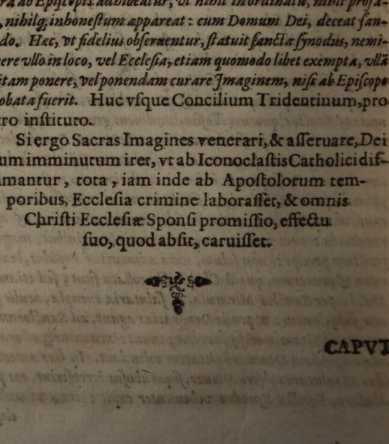 ab Episcopis adhibeatur, vt nihil inordinatũ, nihil profa-
, nihilq; inhonestum appareat: cum Domum Dei, deceat san-
do. Hæc, vt fidelius obseruentur, statuit sancta synodus, nemi-
ere vllo in loco, vel Ecclesia, etiam quomodo libet exempta, vllã
itam ponere, vel ponendam curare Imaginem, nisi ab Episcopo
obata fuerit. Huc vsque Concilium Tridentinum, pro
tro instituto.
Si ergo Sacras Imagines venerari, & asseruare, Dei
um imminutum iret, vt ab Iconoclastis Catholici dif-
amantur, tota, iam inde ab Apostolorum tem-
poribus, Ecclesia crimine laborasset, & omnis
Christi Ecclesiæ Sponsi promissio, effectu
suo, quod absit, caruisset.
CAPVT